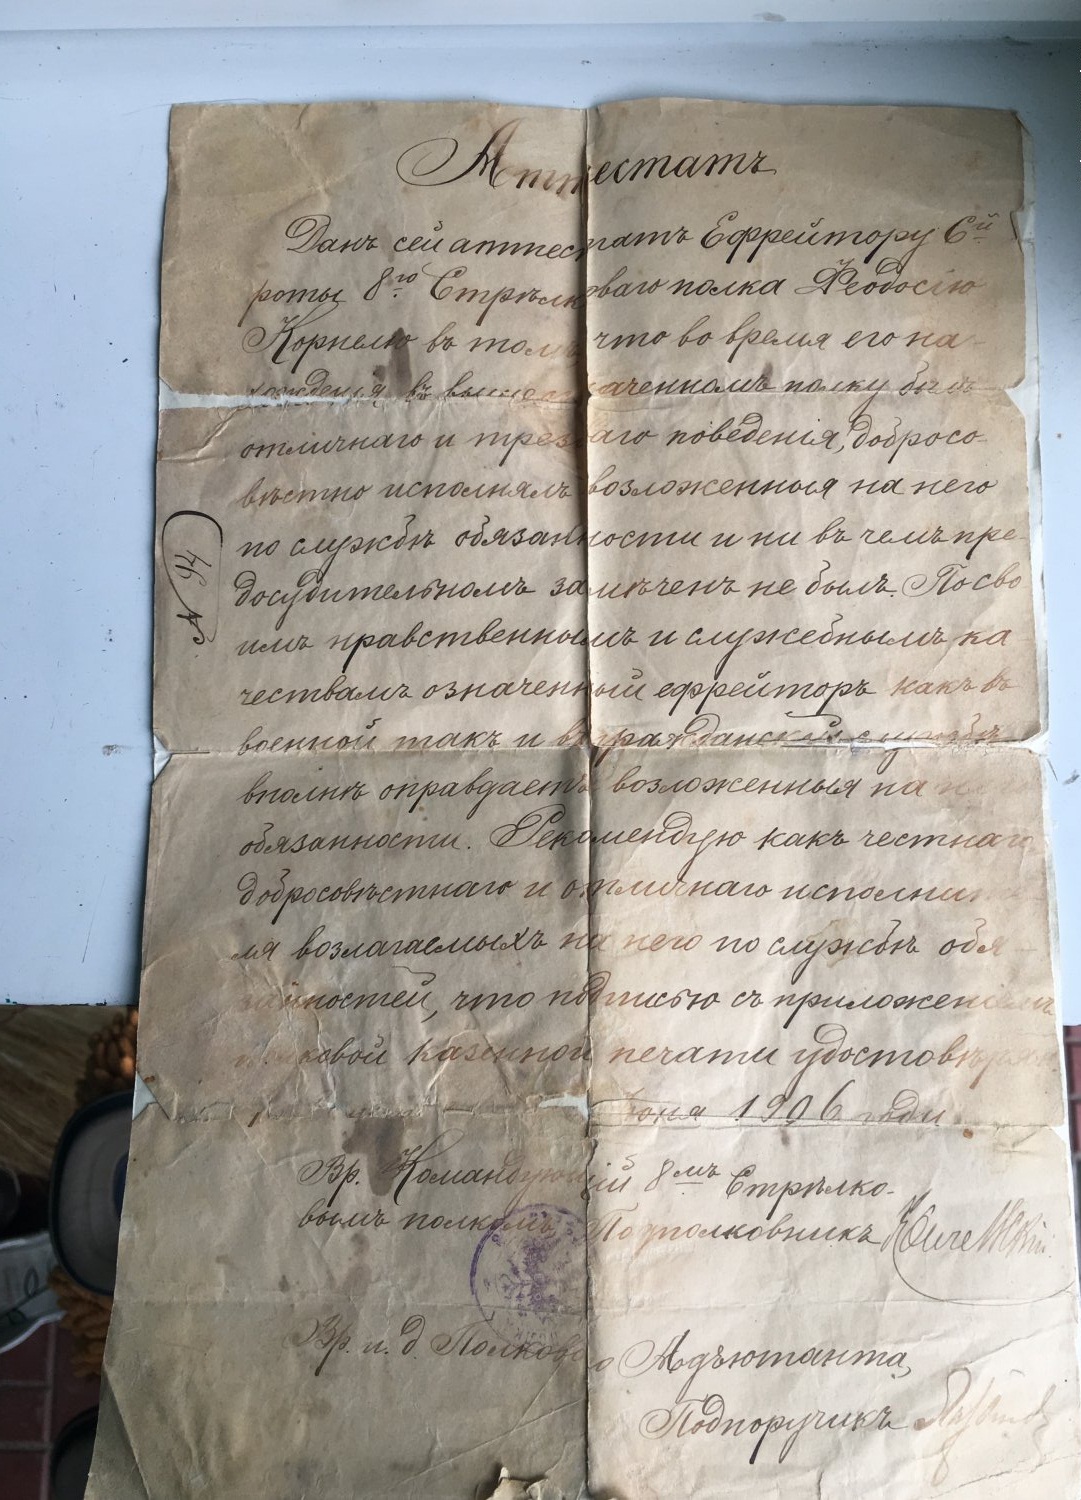 Аттестатъ
Данъ сей аттестатъ Ефрейтору 6й
роты 8го Стрѣлковаго полка Феодосію
Корнелю въ томъ что во время его на-
хожденія въ вышеозначенномъ полку былъ
отличнаго и трезваго поведенія, добросо-
вѣстно исполнялъ возложенныя на него
по службѣ обязанности и ни въ чемъ пре-
досудительномъ замѣченъ не былъ. По сво
имъ нравственнымъ и служебнымъ ка
чествамъ означенный ефрейторъ какъ въ
военной такъ и въ гражданской службѣ
вполнѣ оправдаетъ возложенныя на него
обязанности. Рекомендую какъ честнаго
добросовѣстнаго и отличнаго исполните
ля возлагаемыхъ на него по службѣ обя-
занностей, что подписью съ приложеніемъ
полковой казенной печати удостовѣряю
1906 года
Вр. Командующій 8мъ Стрѣлко-
вымъ полкомъ Подполковникъ
Вр. и. д. Полковаго Адъютанта,
Подпоручикъ
№ 94